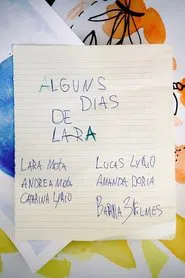 ALGUNS
DIAS
DE
LARA
LARA MOTA
ANDREA MOTA
LYRIO
LUCAS LYRIO
AMANDA DORIA
FILMES